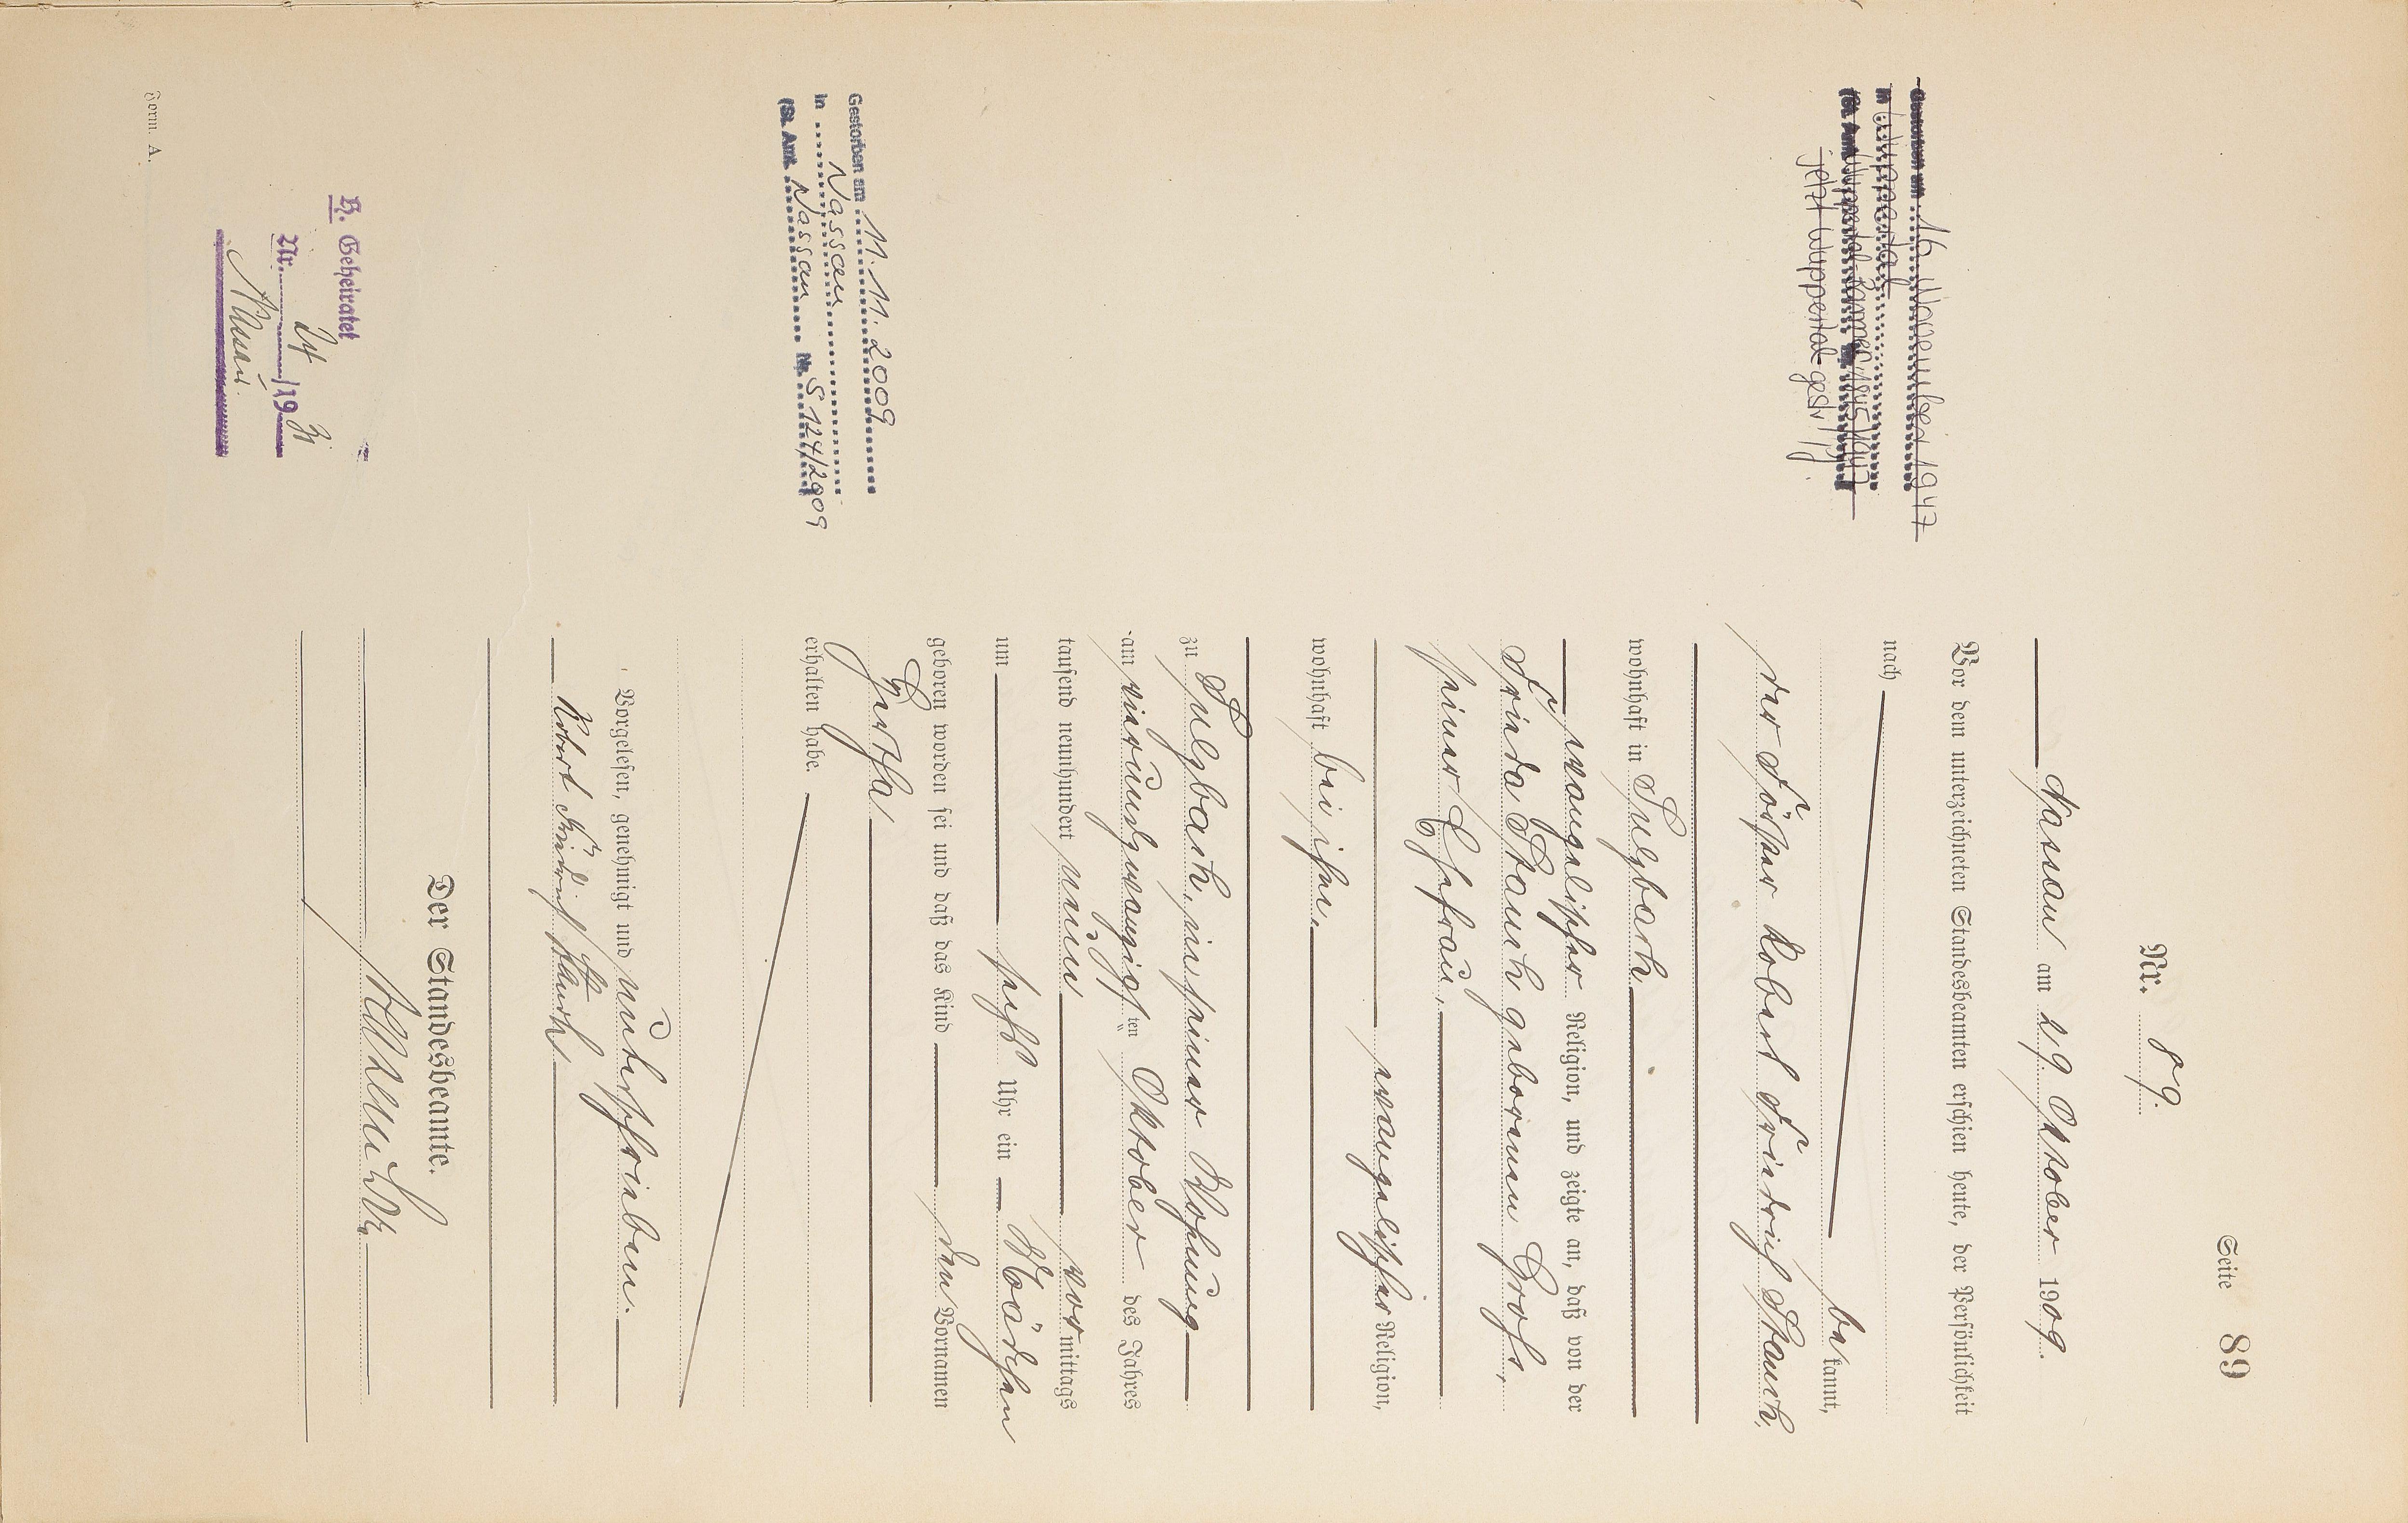 Seite 89
Nr. 89.
Nassau am 29. Oktober 1909.
Vor dem unterzeichneten Standesbeamten erschien heute, der Persönlichkeit
nach
bekannt,
der Förster Robert Friedrich Stauch,
wohnhaft in Sulzbach
evangelischer Religion, und zeigte an, daß von der
Frieda Stauch geborenen Große,
seiner Ehefrau,
evangelischer Religion,
wohnhaft bei ihm,
zu Sulzbach, in seiner Wohnung
am vierundzwanzigsten Oktober des Jahres
tausend neunhundert neun vormittags
um sechs Uhr ein Mädchen
geboren worden sei und daß das Kind den Vornamen
Hertha
erhalten habe.
Vorgelesen, genehmigt und unterschrieben.
Robert Friedrich Stauch
Der Standesbeamte.
Gestorben am 16. November 1947
in Wuppertal
(St. Amt Wuppertal-Barmen 1845/1947
jetzt Wuppertal
Gestorben am 11.11.2009
in Nassau
(St. Amt Nassau Nr. S 124/2009
B. Geheiratet
Nr. 24/1931
Nassau.
Form. A.